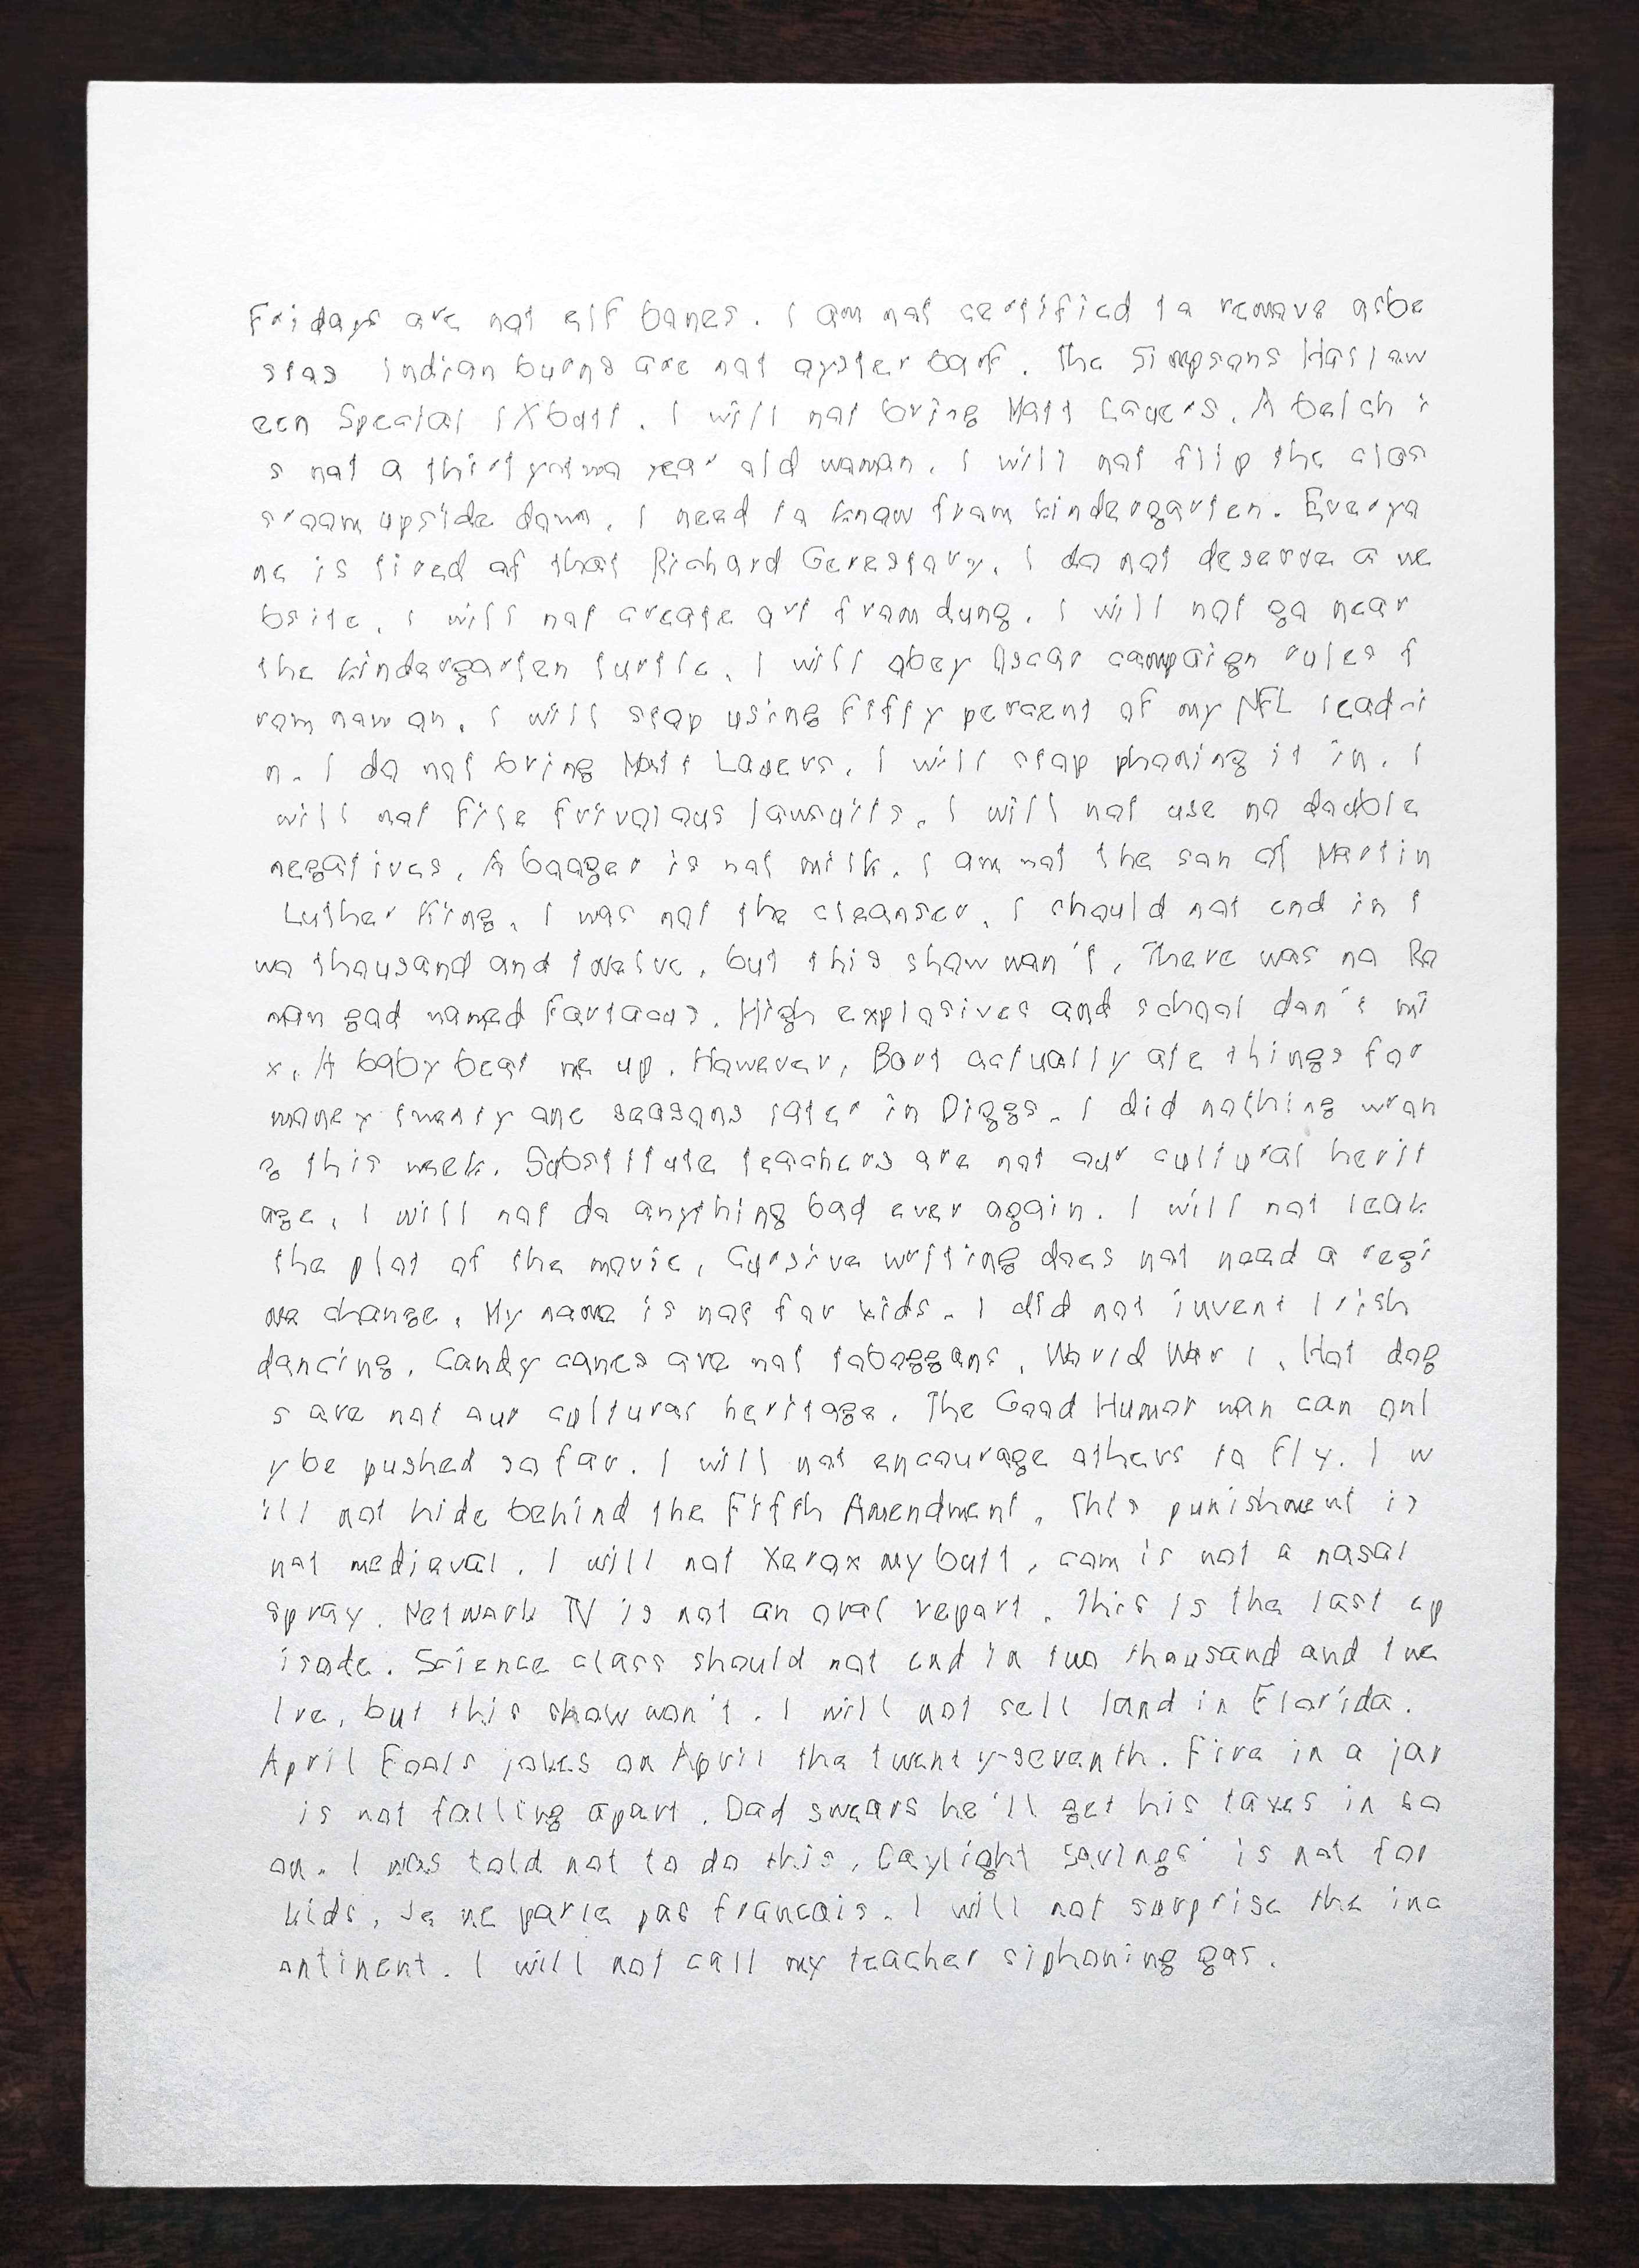 Fridays are not elf bones. I am not certified to remove asbe
stos Indian burns are not oyster barf. The Simpsons Hallow
een Special IX butt. I will not bring Matt Lauers. A belch i
s not a thirtyotwo year old woman. I will not flip the clas
sroom upside down. I need to know from kindergarten. Everyo
ne is tired of that Richard Gerestory. I do not deserve a we
bsite. I will not create art from dung. I will not go near
the kindergarten turtle. I will obey Oscar campaign rules f
rom now on. I will stop using fifty percent of my NFL lead-i
n. I do not bring Matt Lauers. I will stop phoning it in. I
will not file frivolous lawsuits. I will not use no double
negatives. A booger is not milk. I am not the son of Martin
Luther King. I was not the cleanser. I should not end in t
wo thousand and twelve, but this show won't. There was no Ro
man god named Fartacus. High explosives and school don't mi
x. A baby beat me up. However, Bart actually ate things for
money twenty one seasons later in Diggs. I did nothing wron
g this week. Substitute teachers are not our cultural herit
age. I will not do anything bad ever again. I will not leak
the plot of the movie. Cursive writing does not need a regi
me change. My name is not for kids. I did not invent Irish
dancing. Candy canes are not toboggans. World War I. Hot dog
s are not our cultural heritage. The Good Humor man can onl
y be pushed so far. I will not encourage others to fly. I w
ill not hide behind the Fifth Amendment. This punishment is
not medieval. I will not Xerox my butt. com is not a nasal
spray. Network TV is not an oral report. This is the last ep
isode. Science class should not end in two thousand and twe
lve, but this show won't. I will not sell land in Florida.
April Fools jokes on April the twenty-seventh. Fire in a jar
is not falling apart. Dad swears he'll get his taxes in so
on. I was told not to do this. Daylight Savings' is not for
kids. Je ne parle pas francais. I will not surprise the inc
ontinent. I will not call my teacher siphoning gas.